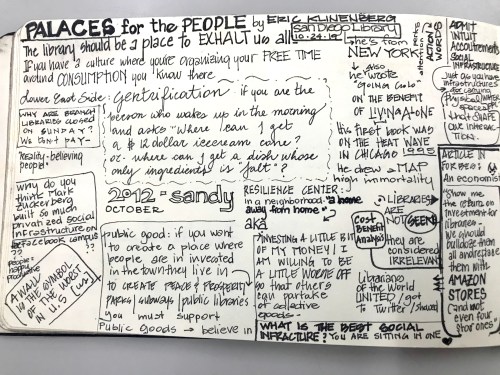 PALACES for the PEOPLE by ERIC KLINENBERG
San Diego Library
10.24.19
The library should be a place to EXHALT us all
If you have a culture where you're organizing your FREE TIME
around CONSUMPTION you know there
he's from
NEW YORK
↓ also
he wrote
"GOING SOLO"
ON THE BENEFIT
OF LIVING ALONE
His first book was
ON THE HEAT WAVE
IN CHICAGO 1995
He drew a MAP
high immortality
ACTION
WORDS
ADMIT
INTUIT
ACCOUTREMENTS
SOCIAL
INFRASTRUCTURE
Just as we have
infrastructures
for carrying
physical WATER
spaces
that SHAPE
OUR INTERACTION.
Lower East Side: Gentrification: if you are the
person who wakes up in the morning
and asks "Where can I get
a $12 dollar icecream cone?
or where can I get a dish whose
only ingredients is "salt"?
WHY ARE BRANCH
LIBRARIES CLOSED
ON SUNDAY?
We don't pay
Reality: believing
people.
Why do you
think Mark
Zuckerberg
built so much
private and social
infrastructure on
Facebook campus
??
people =
happy
productive
A WALL
IS THE SYMBOL
OF THE WORST
IN U.S [us]
2012 - Sandy
OCTOBER
RESILIENCE CENTER:
in a neighborhood "a home
away from home"
aka
public good: if you want
to create a place where
people are in invested
in the town they live in
TO CREATE PEACE & PROSPERITY
PARKS | subways | public libraries
you must support
Public goods → believe in
INVESTING A LITTLE BIT
OF MY MONEY / I
AM WILLIN TO BE
A LITTLE WORSE OFF
so that others
can partake
of collective
goods.
Cost
Benefit
Analysis
LIBRARIES
ARE
NOT GEEKY
they are
considered
IRRELEVANT
Librarians
of the World
UNITED / got
to Twitter / shared
WHAT IS THE BEST SOCIAL
INFRACTURE? YOU ARE SITTING IN ONE
ARTICLE IN
FORBES:
An economist
"Show me
the ROI on
investment for
libraries -
We should
bulldoze them
all and replace
them with
AMAZON
STORES
(and not
even four
star ones"